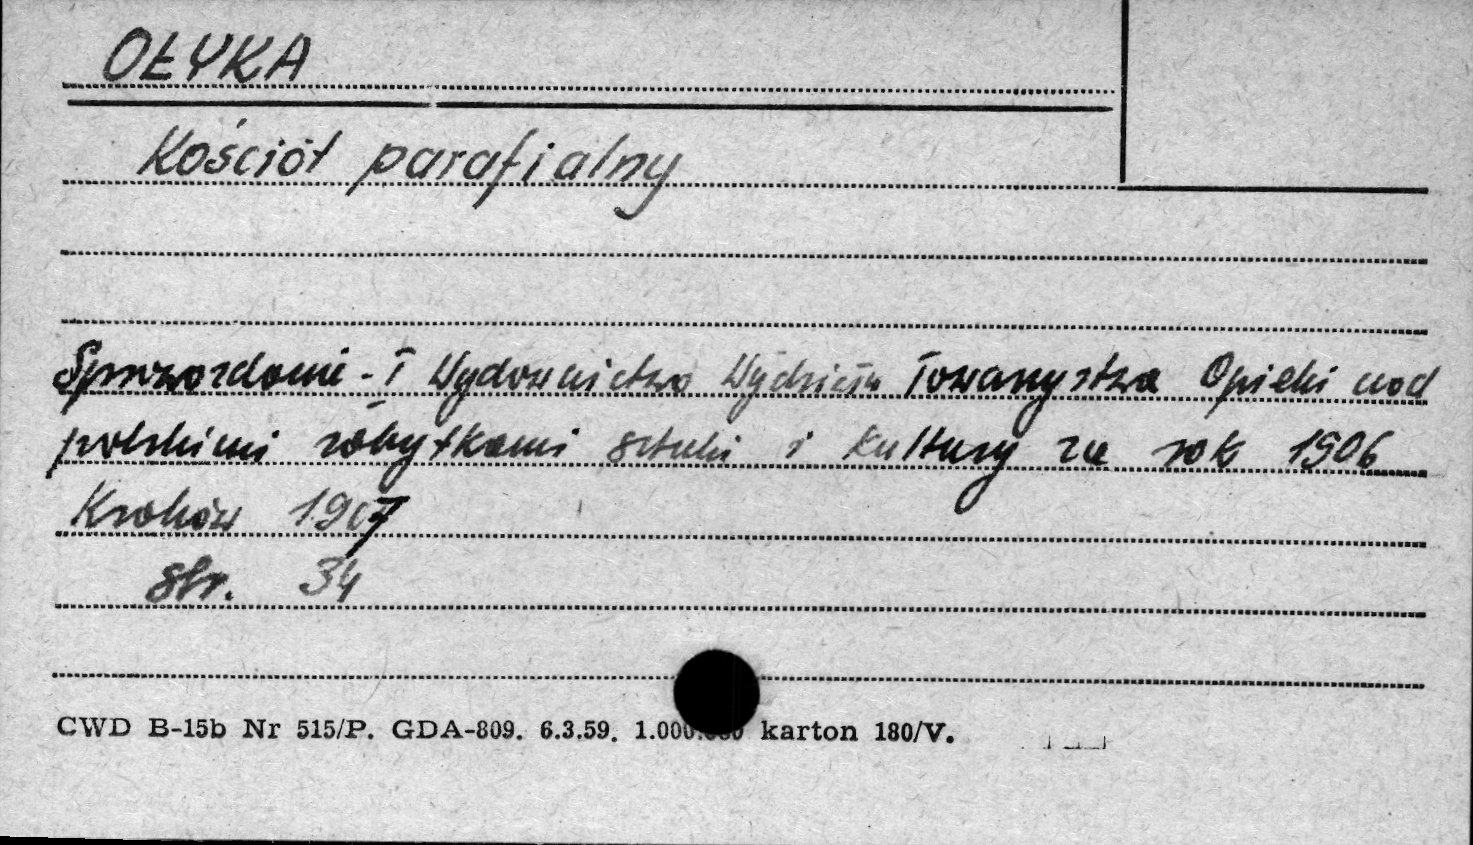 OŁYKA
Kościół parafialny
Sprawozdanie - I Wydawnictwo Wydziału Towarzystwa Opieki nad
polskimi zabytkami sztuki i kultury za rok 1906
Kraków 1907
str. 34
CWD B-15b Nr 515/P. GDA-809. 6.3.59. 1.000.000 karton 180/V.